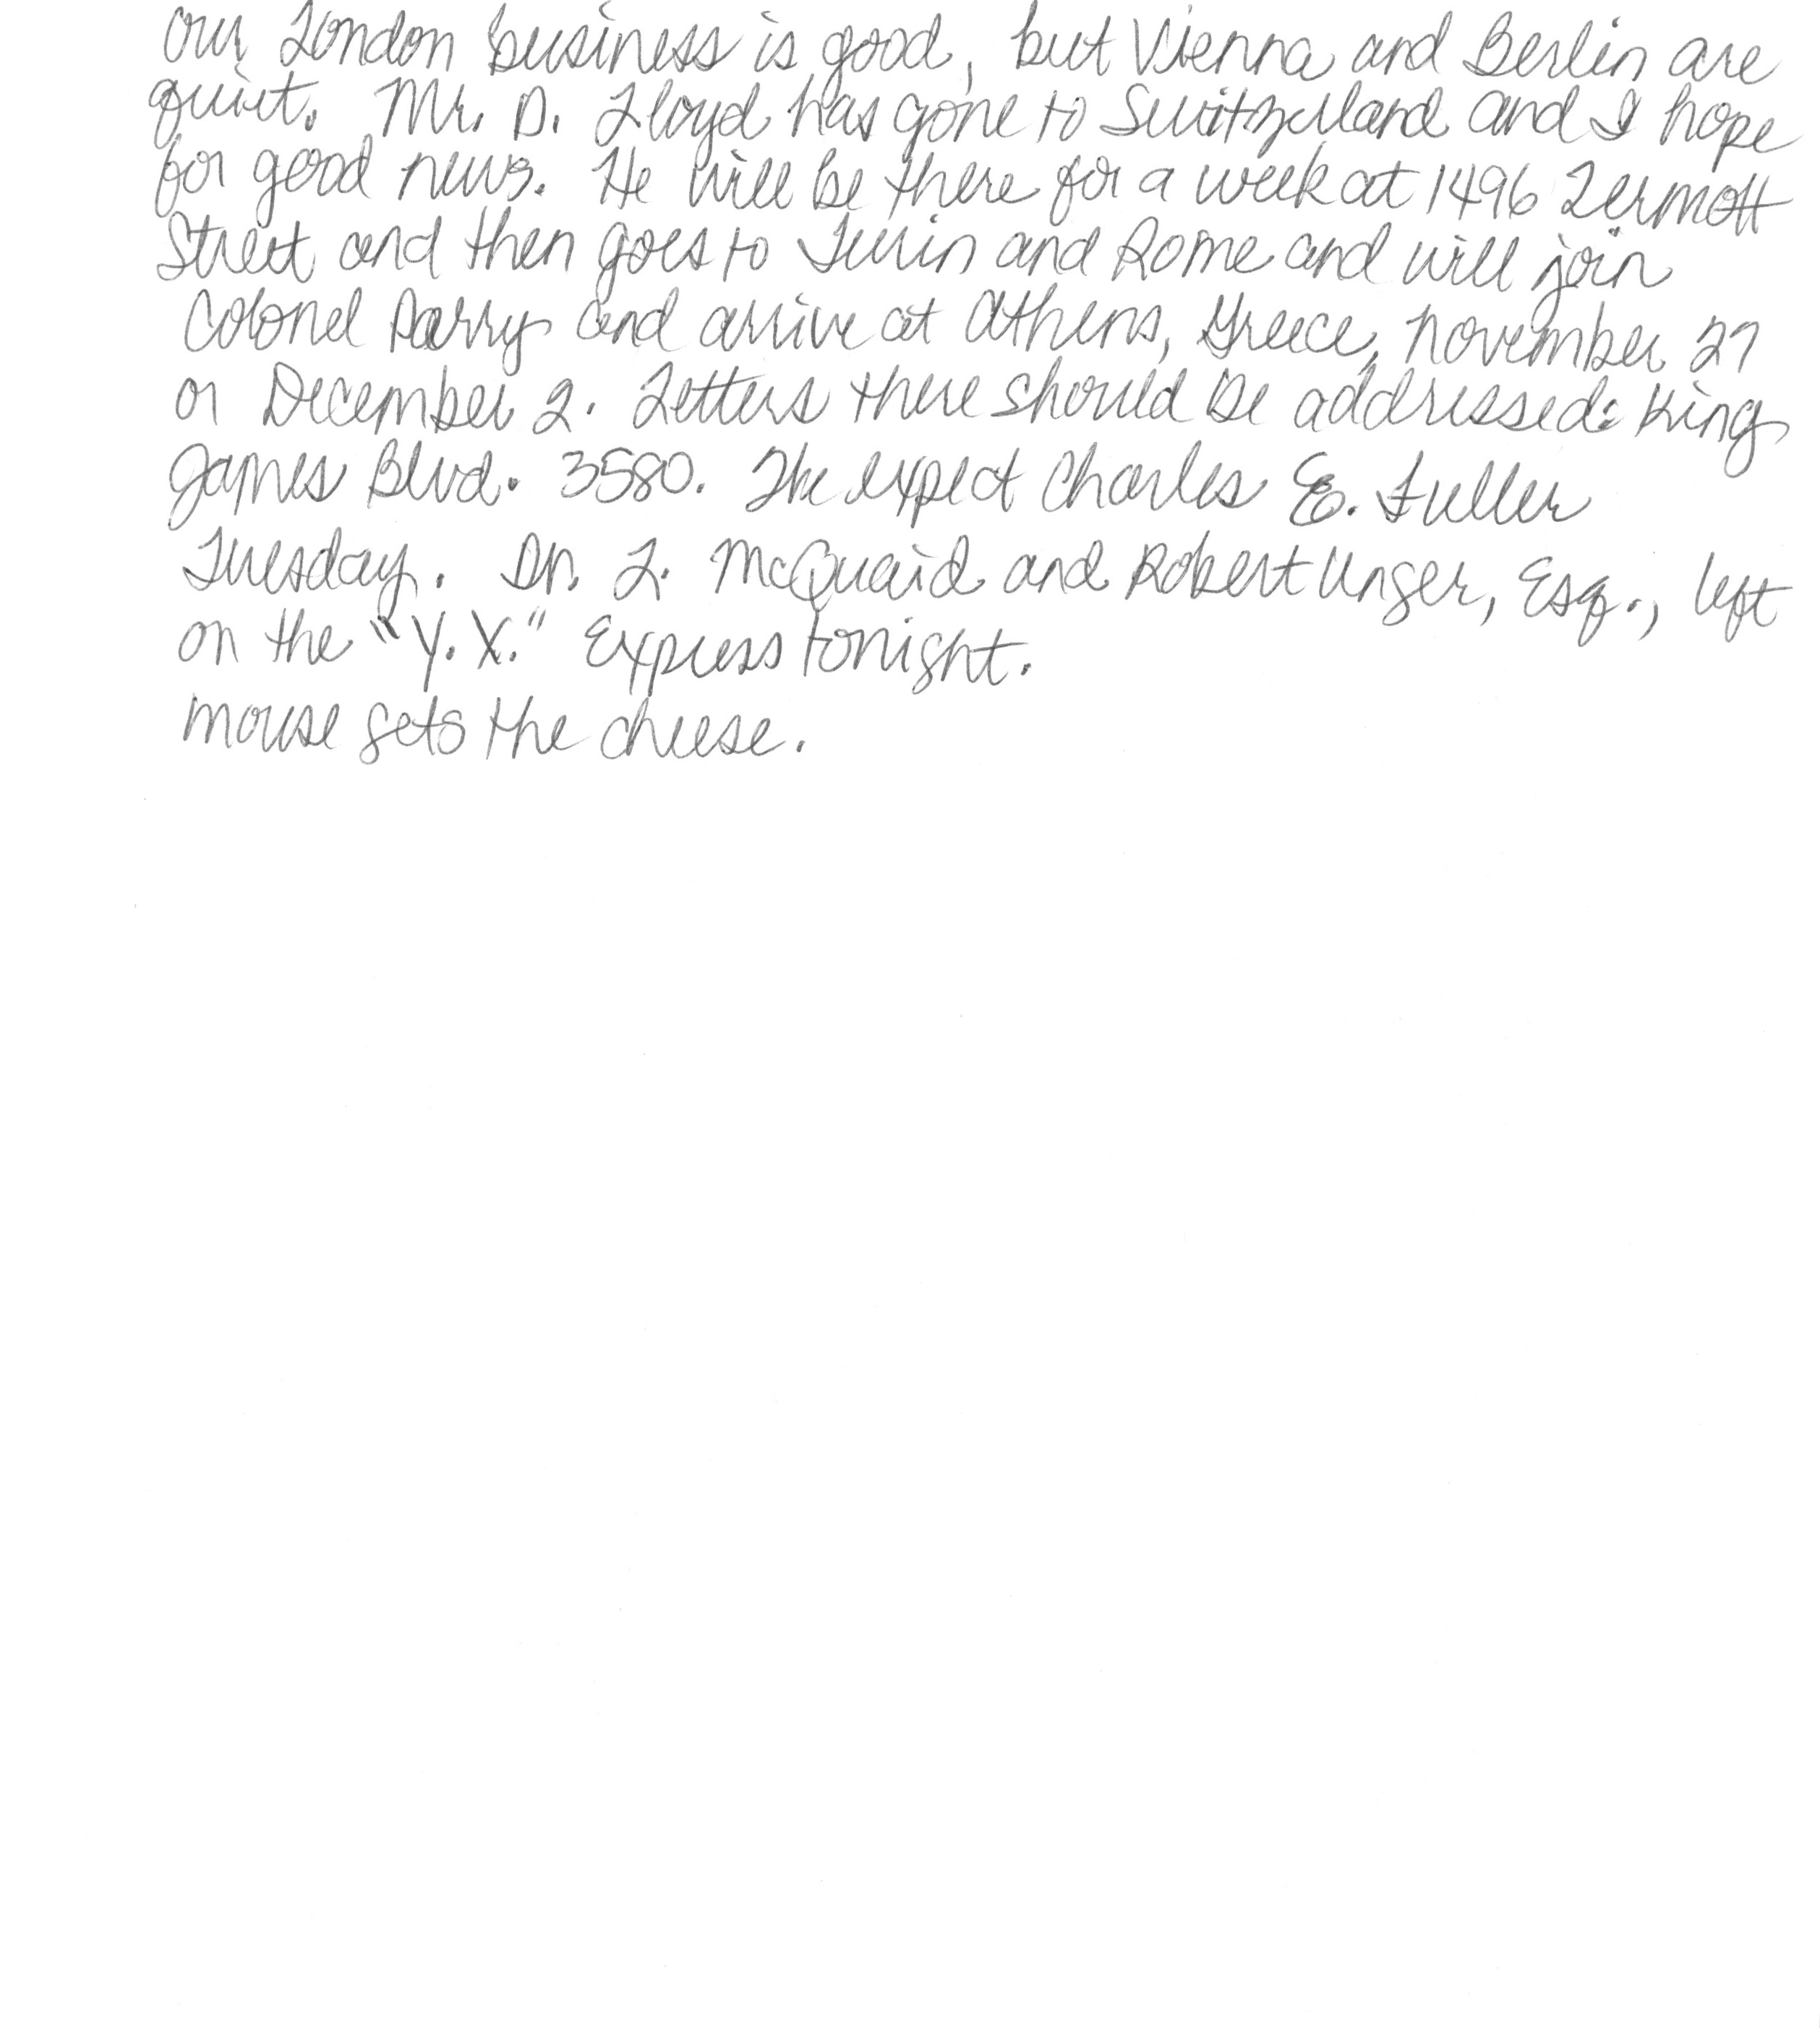 Our London business is good, but Vienna and Berlin are
quiet. Mr. D. Lloyd has gone to Switzerland and I hope
for good news. He will be there for a week at 1496 Zermott
Street and then goes to Turin and Rome and will join
Colonel Parry and arrive at Athens, Greece, November 27
or December 2. Letters there should be addressed: King
James Blvd. 3580. The expect Charles E. Fuller
Tuesday. Dr. L. McQuaid and Robert Unger, Esq., left
on the "Y.X." Express tonight.
mouse gets the cheese.